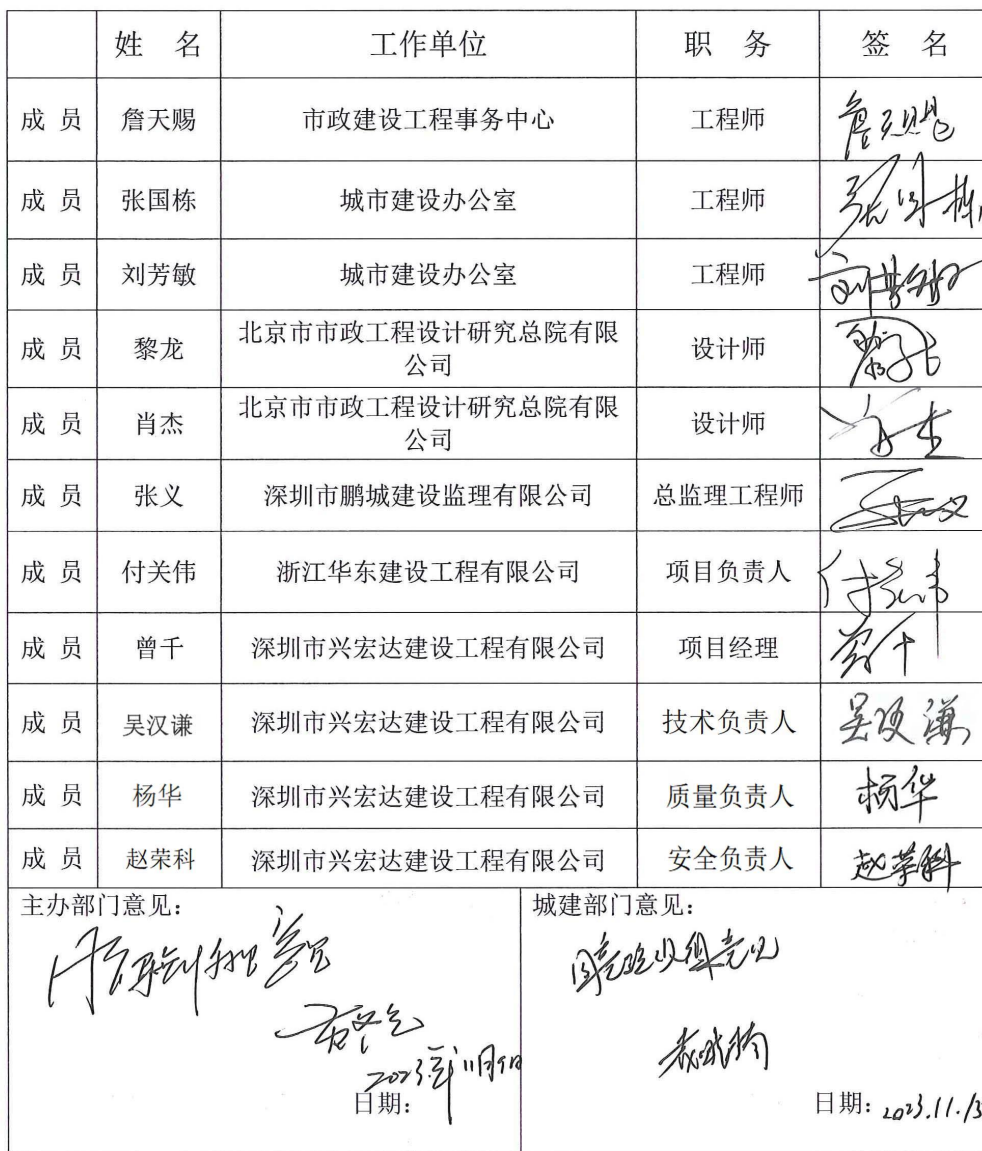 姓 名 工作单位 职 务 签 名
成 员 詹天赐 市政建设工程事务中心 工程师 詹天赐
成 员 张国栋 城市建设办公室 工程师 张国栋
成 员 刘芳敏 城市建设办公室 工程师 刘芳敏
成 员 黎龙 北京市市政工程设计研究总院有限
公司 设计师 黎龙
成 员 肖杰 北京市市政工程设计研究总院有限
公司 设计师 肖杰
成 员 张义 深圳市鹏城建设监理有限公司 总监理工程师 张义
成 员 付关伟 浙江华东建设工程有限公司 项目负责人 付关伟
成 员 曾千 深圳市兴宏达建设工程有限公司 项目经理 曾千
成 员 吴汉谦 深圳市兴宏达建设工程有限公司 技术负责人 吴汉谦
成 员 杨华 深圳市兴宏达建设工程有限公司 质量负责人 杨华
成 员 赵荣科 深圳市兴宏达建设工程有限公司 安全负责人 赵荣科
主办部门意见：
日期：
城建部门意见：
同意验收组意见
日期：2023.11.13